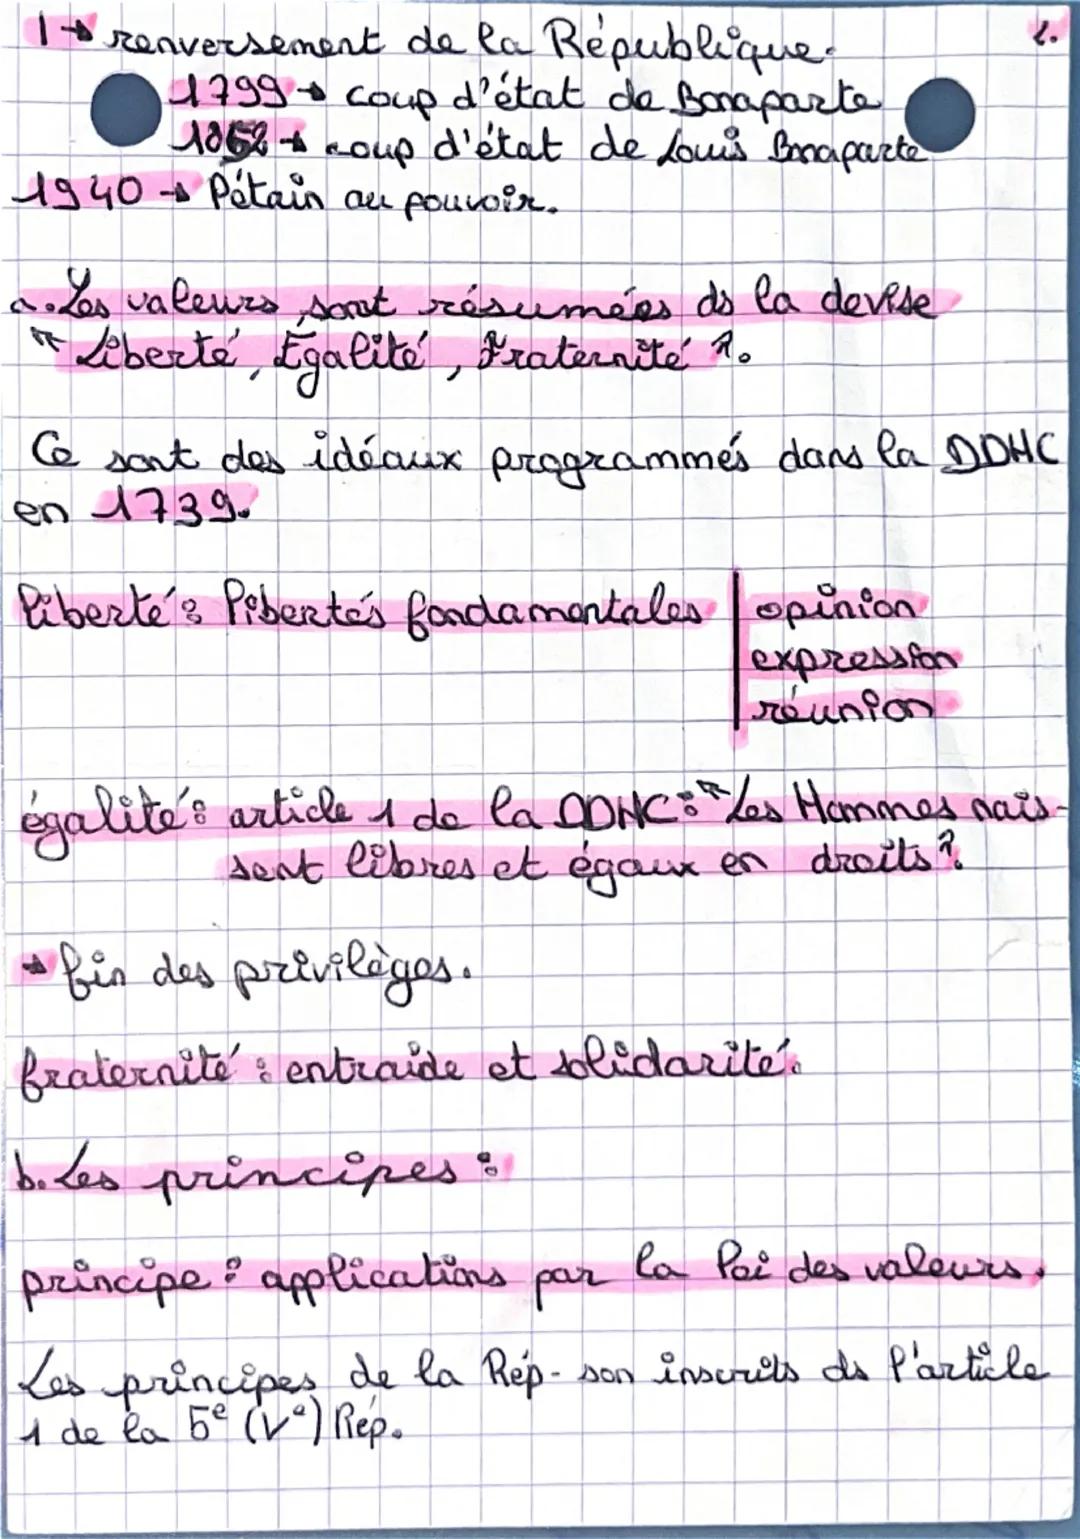 2.
1→ renversement de la République.
1799→ coup d'état de Bonaparte
1852→ coup d'état de Louis Bonaparte
1940→ Pétain au pouvoir.
a. Les valeurs sont résumées ds la devise
" Liberté, Égalité, Fraternité ".
Ce sont des idéaux programmés dans la DDHC
en 1739.
liberté : libertés fondamentales | opinion
expression
réunion
égalité : article 1 de la DDHC : " Les Hommes nais-
sent libres et égaux en droits ".
→ fin des privilèges.
fraternité : entraide et solidarité.
b. Les principes :
principe : applications par la loi des valeurs.
Les principes de la Rép. son inscrits ds l'article
1 de la 5e (Ve) Rép.